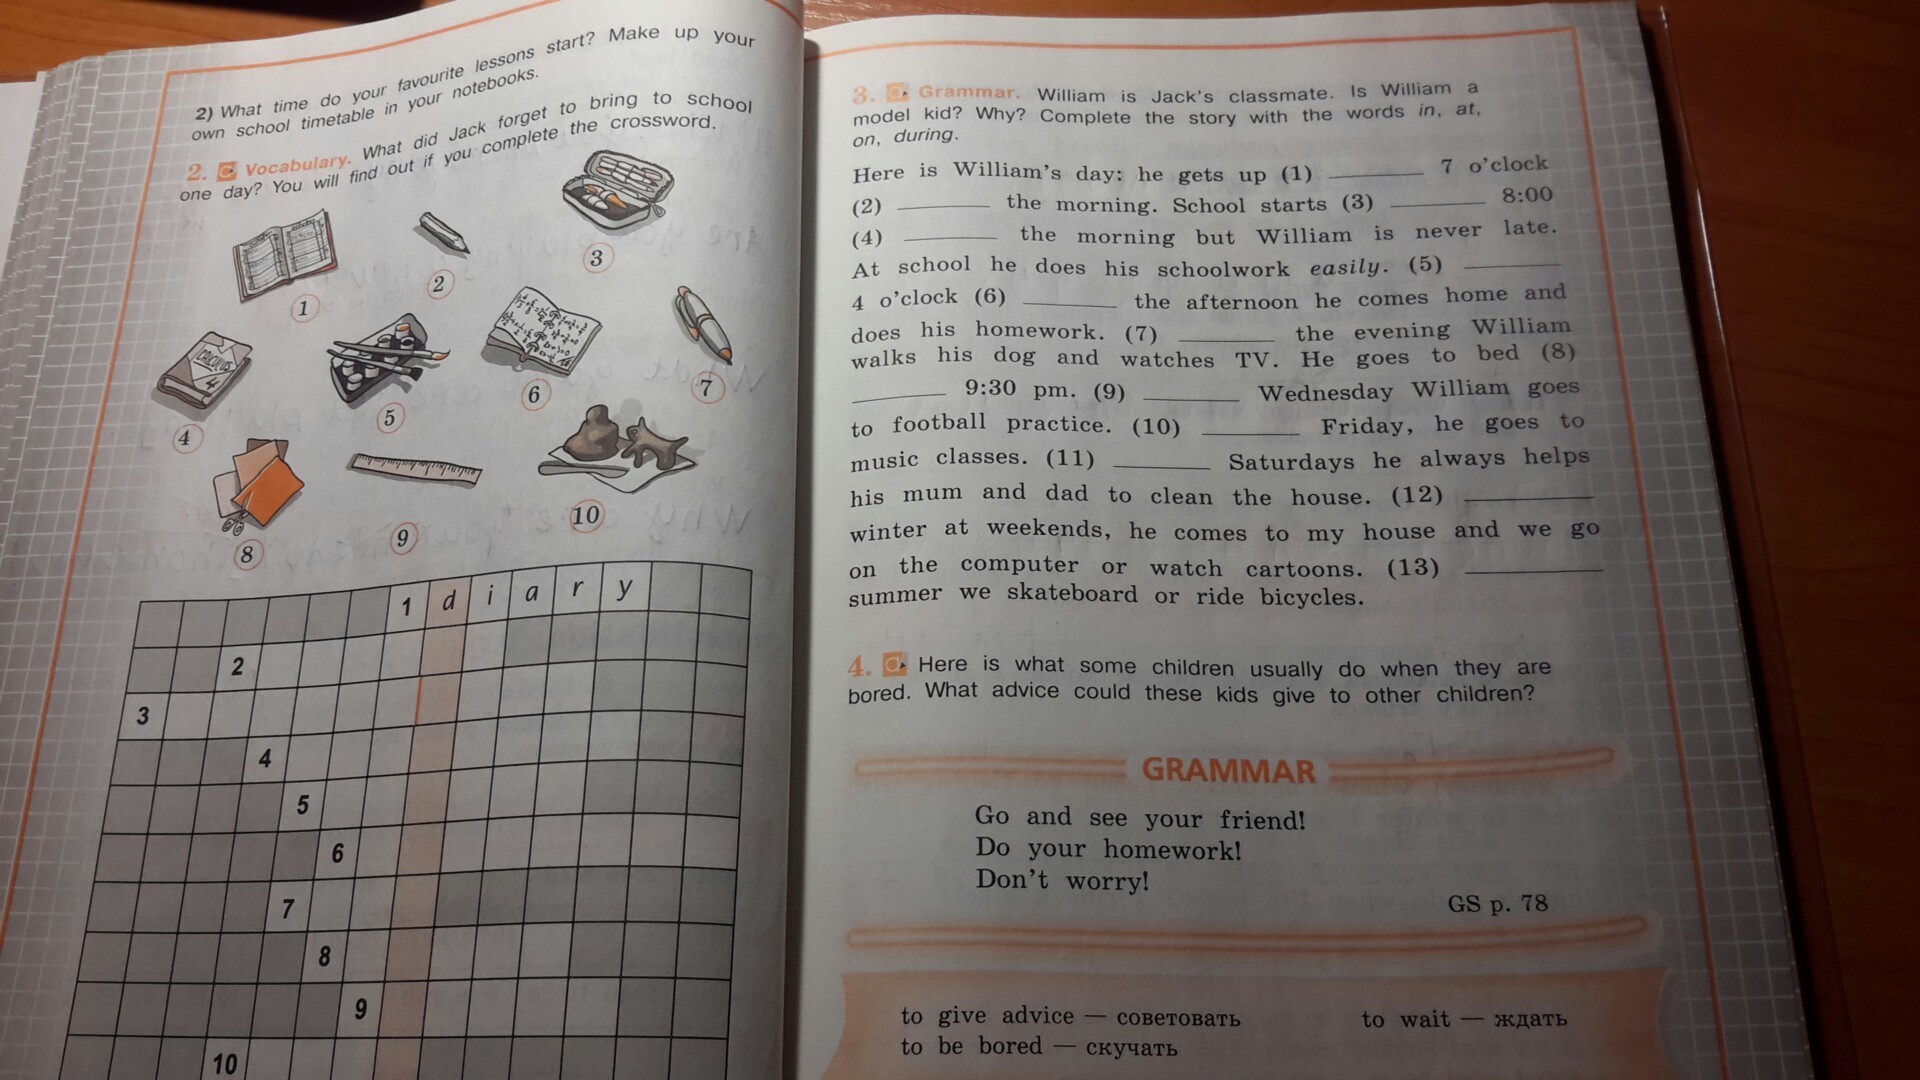 2) What time do your favourite lessons start? Make up your
own school timetable in your notebooks.
2. Vocabulary. What did Jack forget to bring to school
one day? You will find out if you complete the crossword.
1
2
3
CALCULUS
4
4
5
6
7
8
9
10
1 d i a r y
2
3
4
5
6
7
8
9
10
3. Grammar. William is Jack's classmate. Is William a
model kid? Why? Complete the story with the words in, at,
on, during.
Here is William's day: he gets up (1) ________ 7 o'clock
(2) ________ the morning. School starts (3) ________ 8:00
(4) ________ the morning but William is never late.
At school he does his schoolwork easily. (5) ________
4 o'clock (6) ________ the afternoon he comes home and
does his homework. (7) ________ the evening William
walks his dog and watches TV. He goes to bed (8)
________ 9:30 pm. (9) ________ Wednesday William goes
to football practice. (10) ________ Friday, he goes to
music classes. (11) ________ Saturdays he always helps
his mum and dad to clean the house. (12) ________
winter at weekends, he comes to my house and we go
on the computer or watch cartoons. (13) ________
summer we skateboard or ride bicycles.
4. Here is what some children usually do when they are
bored. What advice could these kids give to other children?
GRAMMAR
Go and see your friend!
Do your homework!
Don't worry!
GS p. 78
to give advice — советовать
to wait — ждать
to be bored — скучать